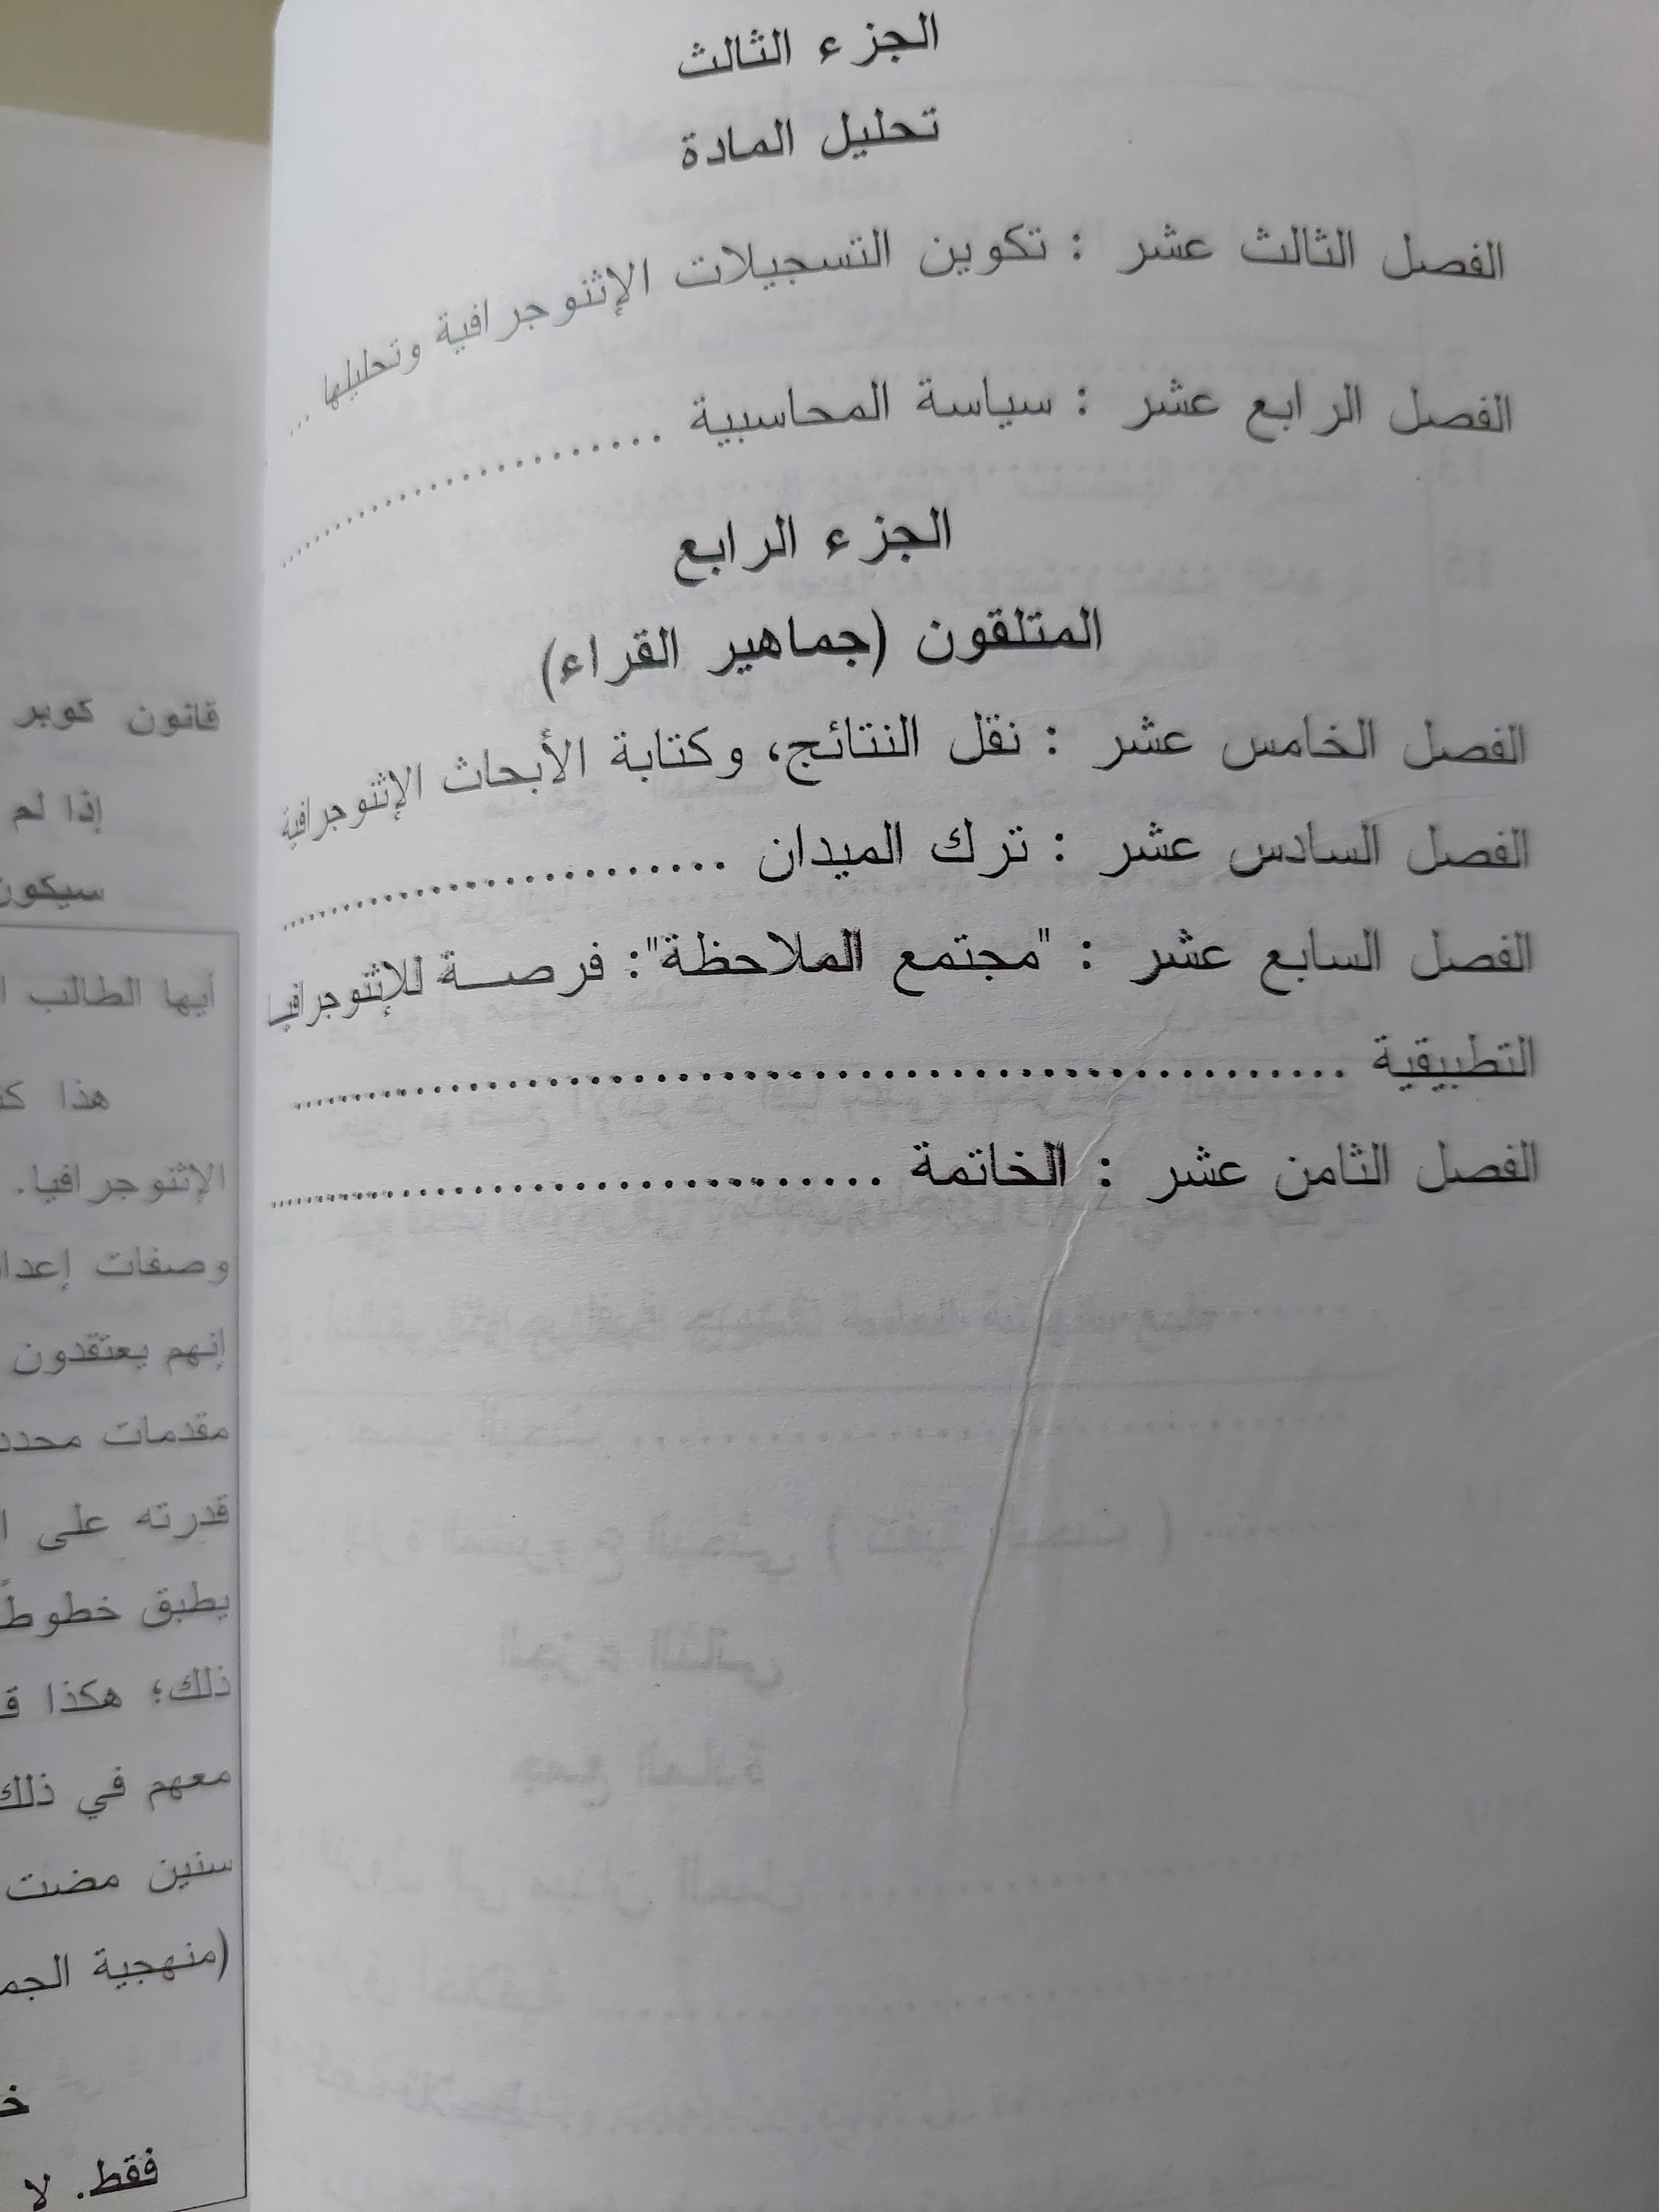 الجزء الثالث
تحليل المادة
الفصل الثالث عشر : تكوين التسجيلات الإثنوجرافية وتحليلها ...
الفصل الرابع عشر : سياسة المحاسبية ..............................
الجزء الرابع
المتلقون (جماهير القراء)
الفصل الخامس عشر : نقل النتائج، وكتابة الأبحاث الإثنوجرافية
الفصل السادس عشر : ترك الميدان ..............................
الفصل السابع عشر : "مجتمع الملاحظة": فرصة للإثنوجرافيا
التطبيقية ............................................................
الفصل الثامن عشر : الخاتمة ........................................
قانون كوبر
إذا لم
سيكون
أيها الطالب
هذا
الإثنوجرافيا.
وصفات
إنهم يعتقدون
مقدمات
قدرته على
يطبق
ذلك؛ هكذا
معهم في ذلك
سنين مضت
(منهجية
فقط. لا